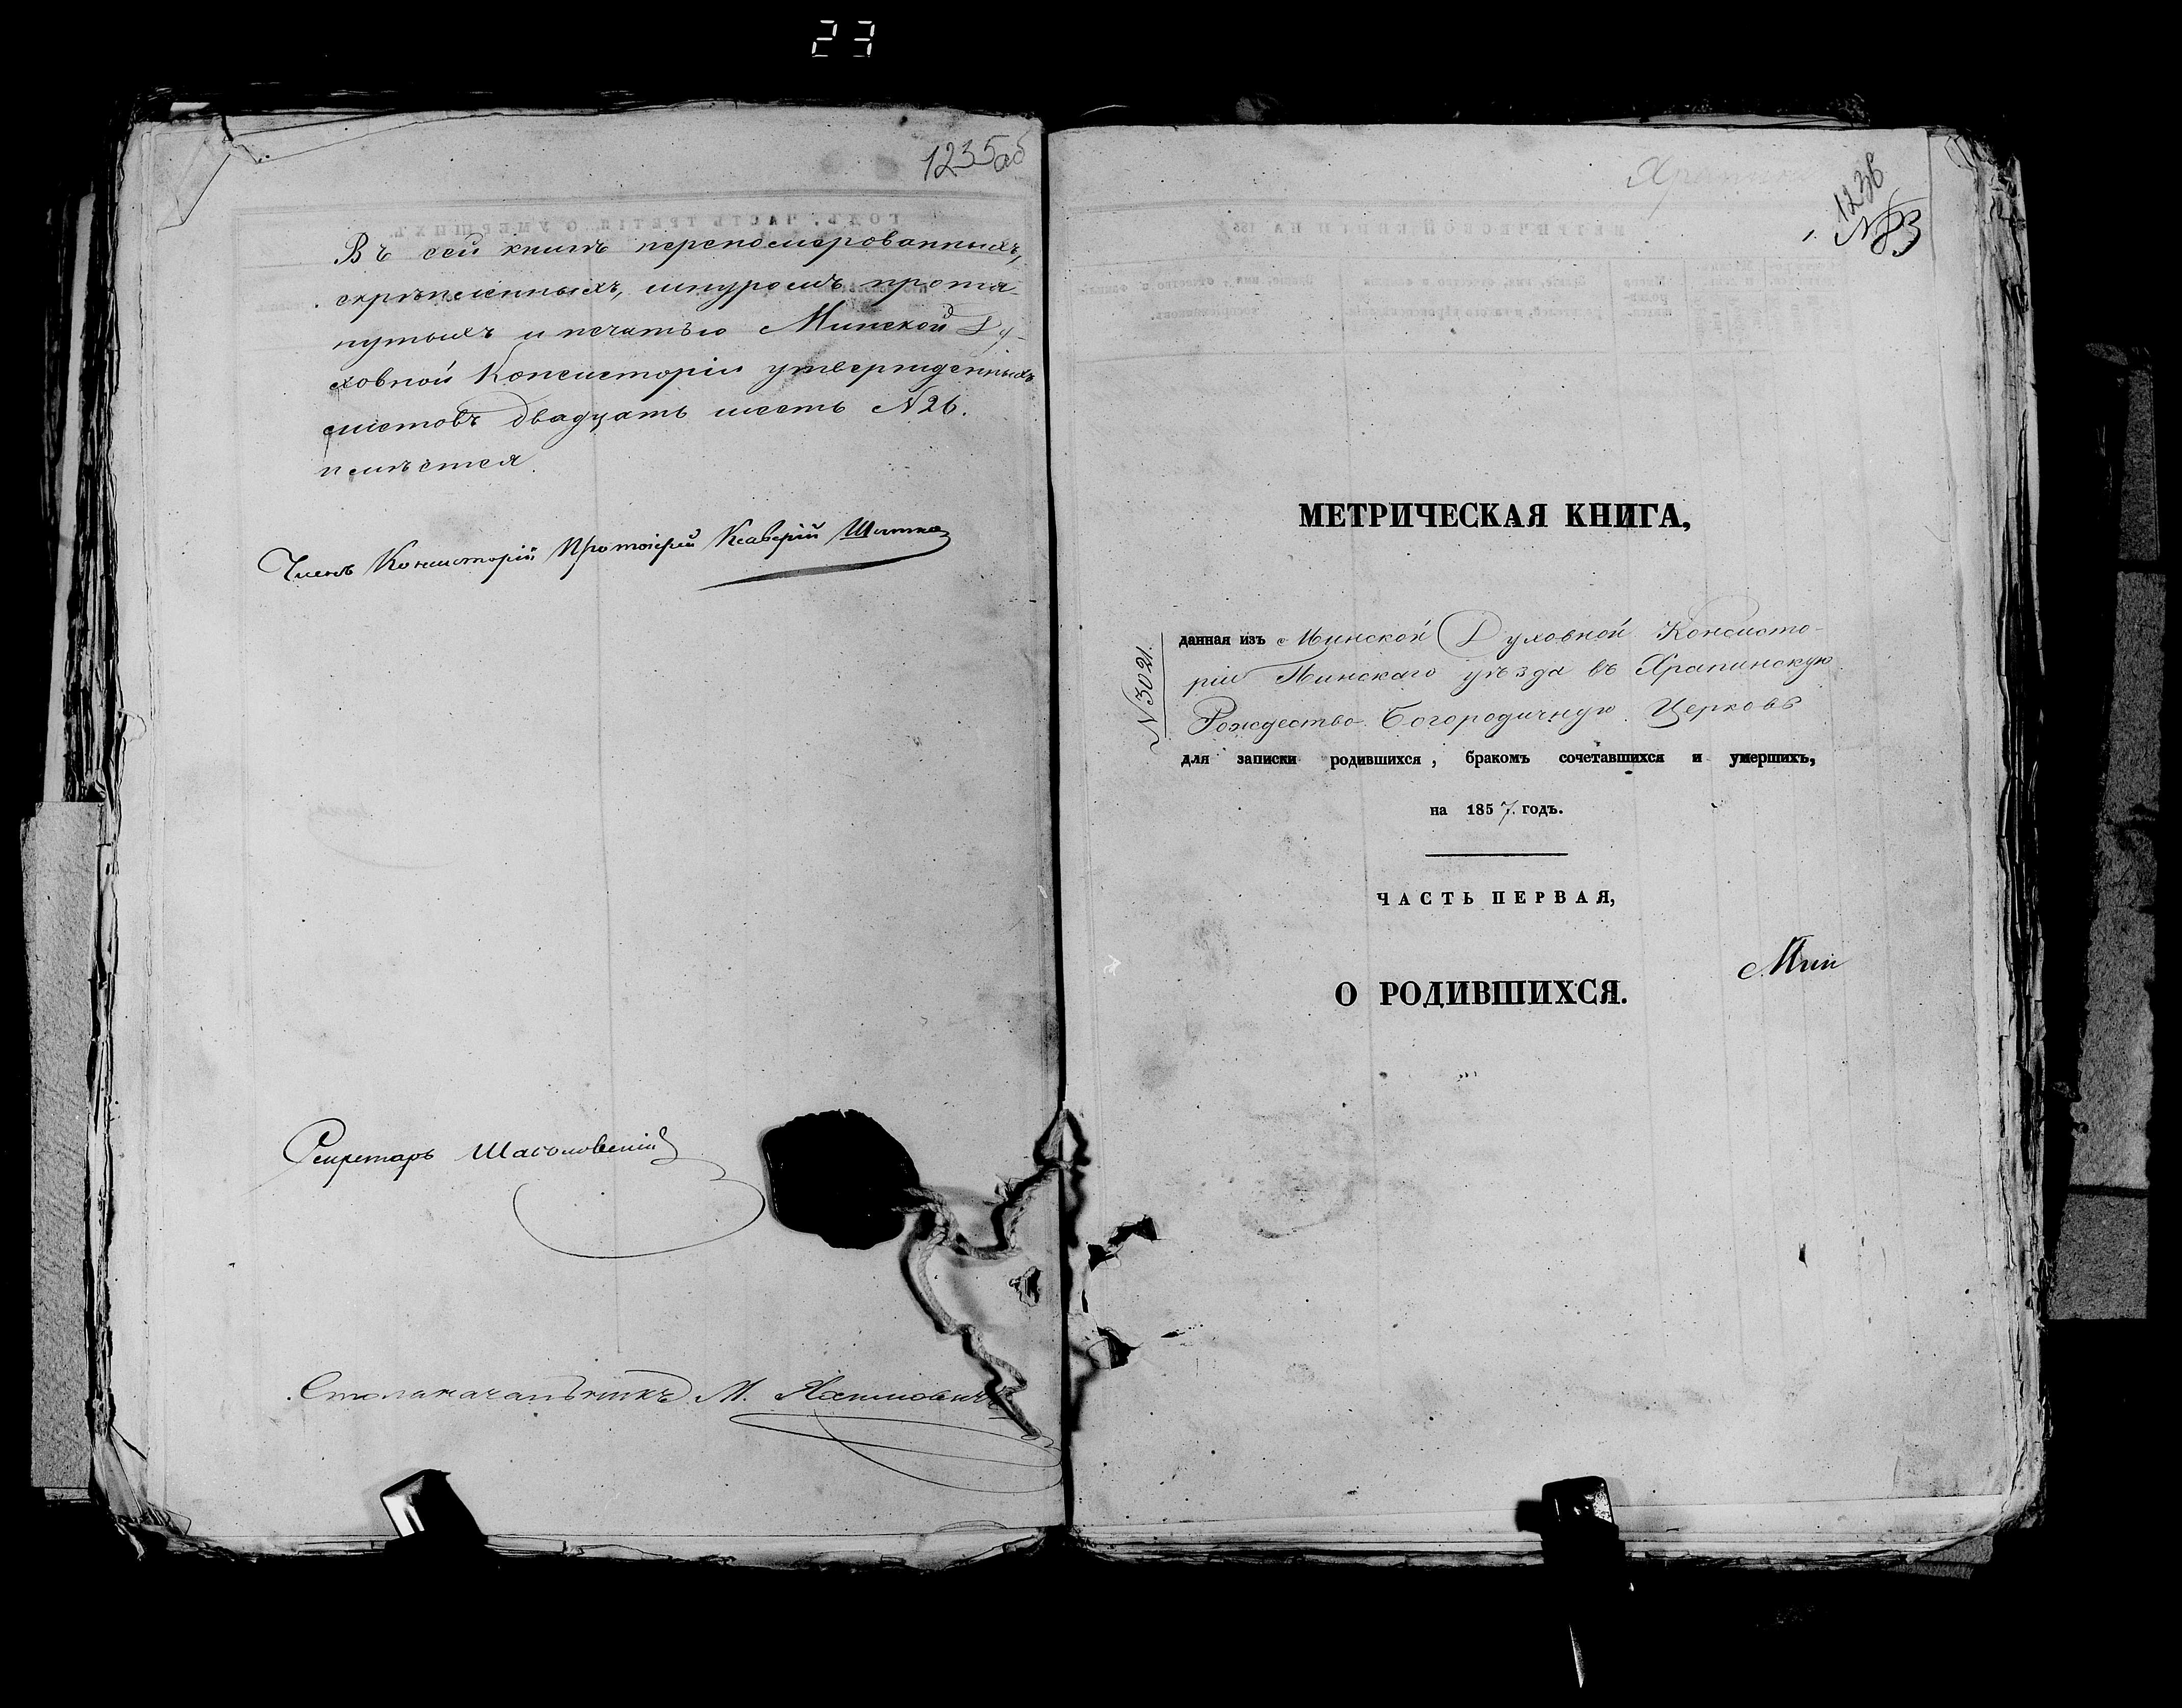 23
1235об
Въ сей книгѣ переномерованныхъ,
скрѣпленныхъ, шнуромъ протя-
нутыхъ и печатью Минской Ду-
ховной Консисторіи утвержденныхъ
листовъ двадцать шесть N 26.
имѣется.
Членъ Консисторіи Протоіерей Ксаверій
Секретарь
Столоначальникъ М.
1236
N
МЕТРИЧЕСКАЯ КНИГА,
N 3021.
данная изъ Минской Духовной Консисто-
ріи Пинскаго уѣзда въ Храпинскую
Рождество-Богородичную Церковь
для записки родившихся, бракомъ сочетавшихся и умершихъ,
на 1857. годъ.
ЧАСТЬ ПЕРВАЯ,
О РОДИВШИХСЯ.
Мин